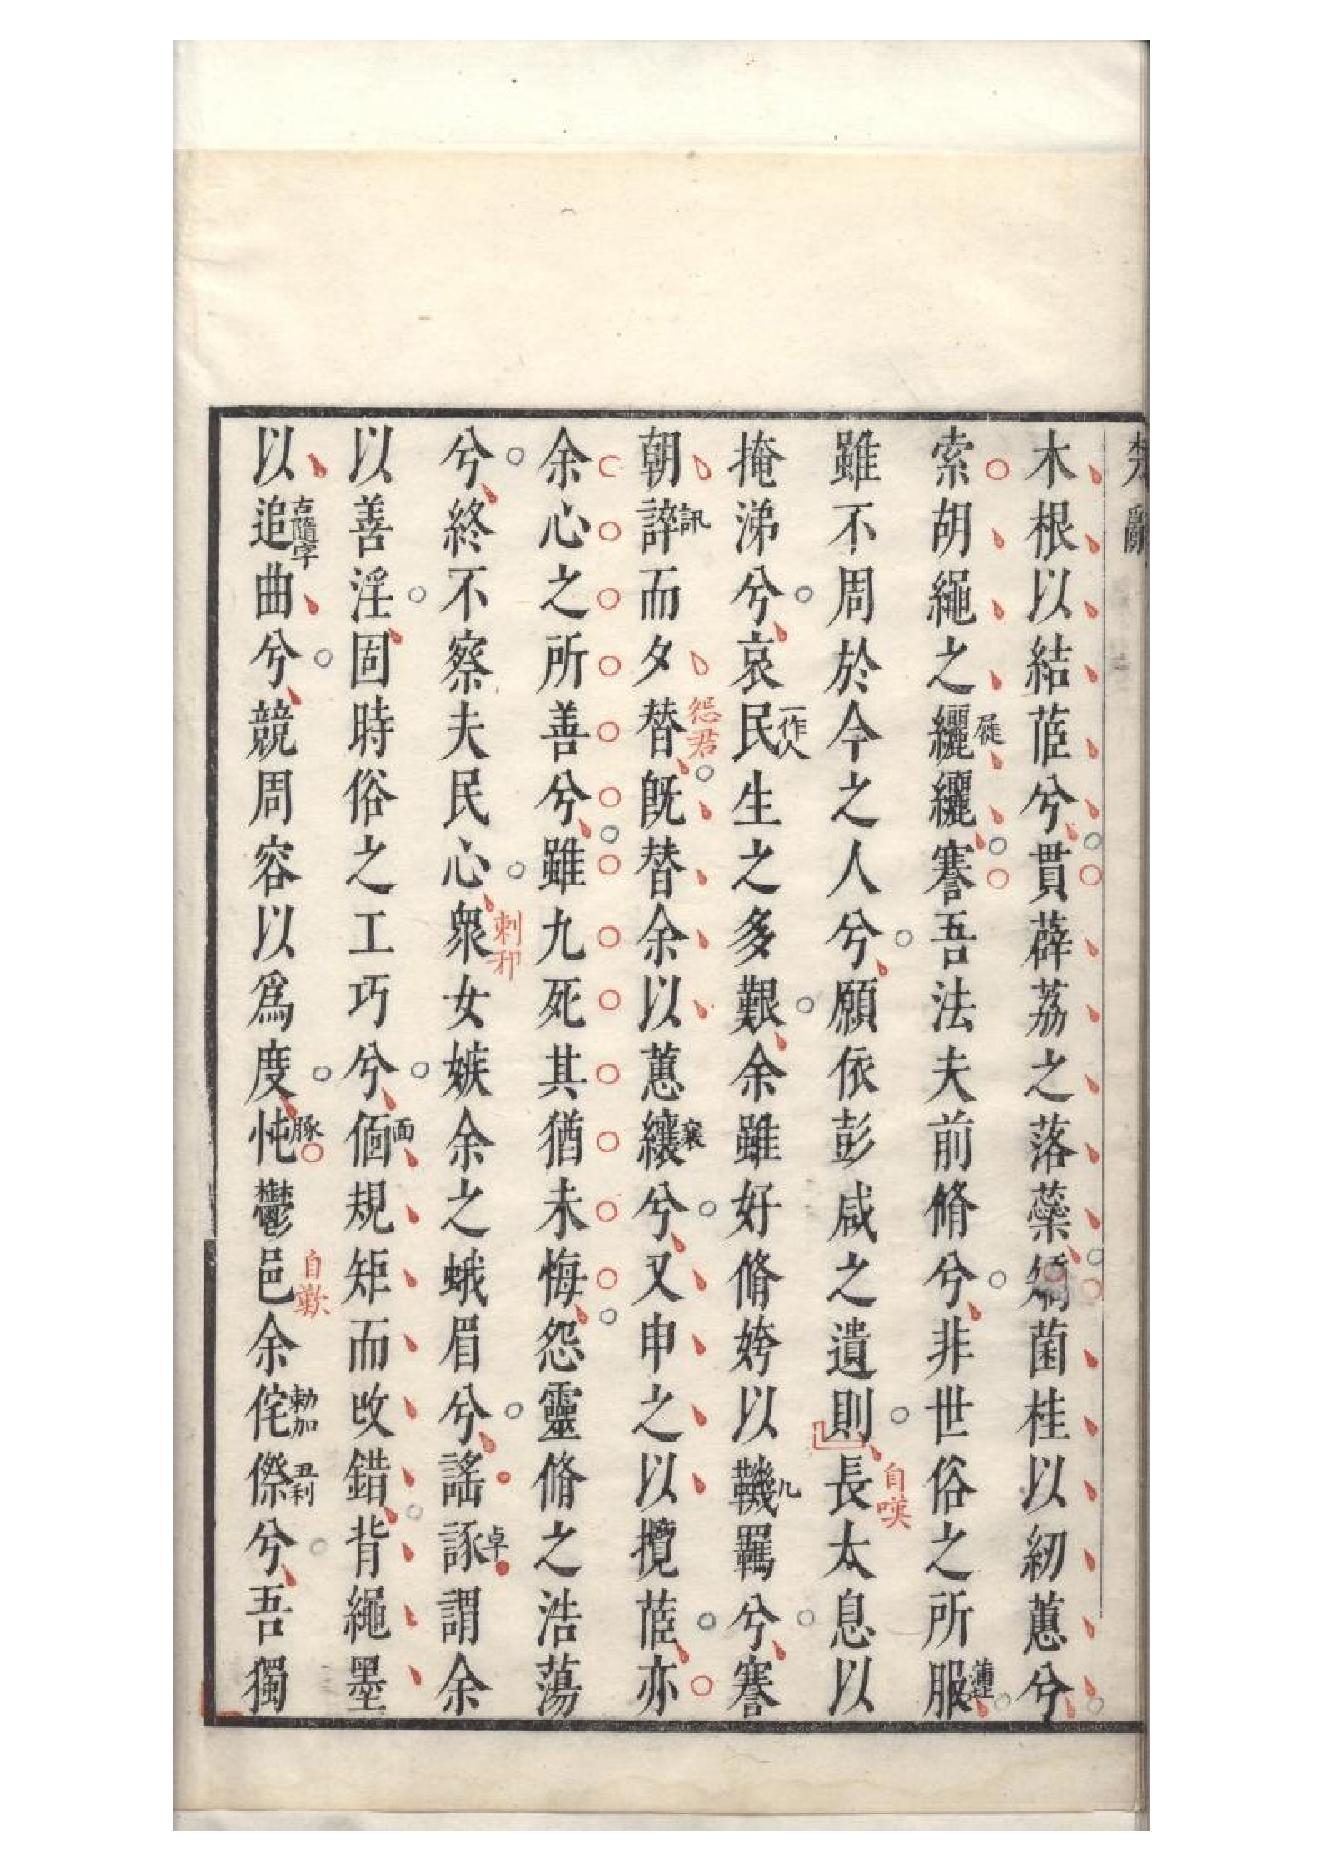 楚辭
木根以結茝兮貫薜荔之落蘂矯菌桂以紉蕙兮
索胡繩之纚纚屣謇吾法夫前脩兮非世俗之所服蒲北
雖不周於今之人兮願依彭咸之遺則自嘆長太息以
掩涕兮哀民一作人生之多艱余雖好脩姱以鞿几羈兮謇
朝誶訊而夕替怨君既替余以蕙纕襄兮又申之以攬茝亦
余心之所善兮雖九死其猶未悔怨靈脩之浩蕩
兮終不察夫民心衆刺邪女嫉余之蛾眉兮謠諑卓謂余
以善淫固時俗之工巧兮偭面規矩而改錯背繩墨
以追古隨字曲兮競周容以爲度忳豚鬱邑自歎余侘勑加傺丑利兮吾獨